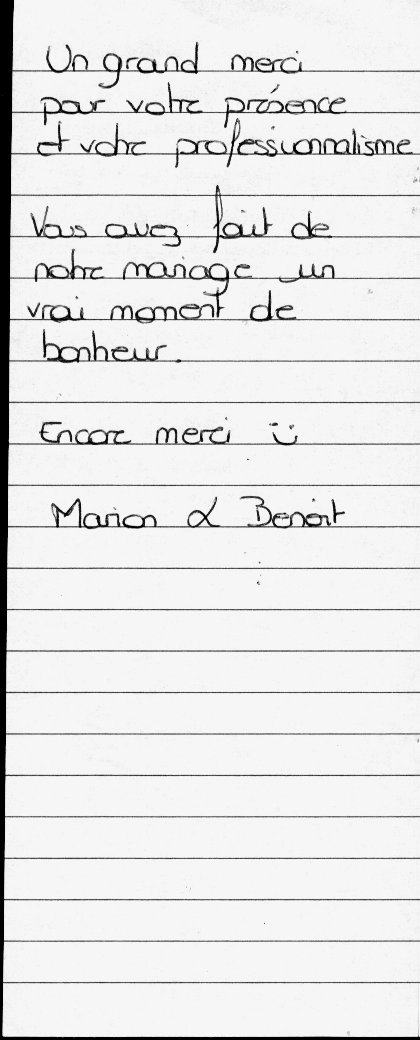 Un grand merci
pour votre présence
et votre professionnalisme
Vous avez fait de
notre mariage un
vrai moment de
bonheur.
Encore merci Ü
Marion & Benoit